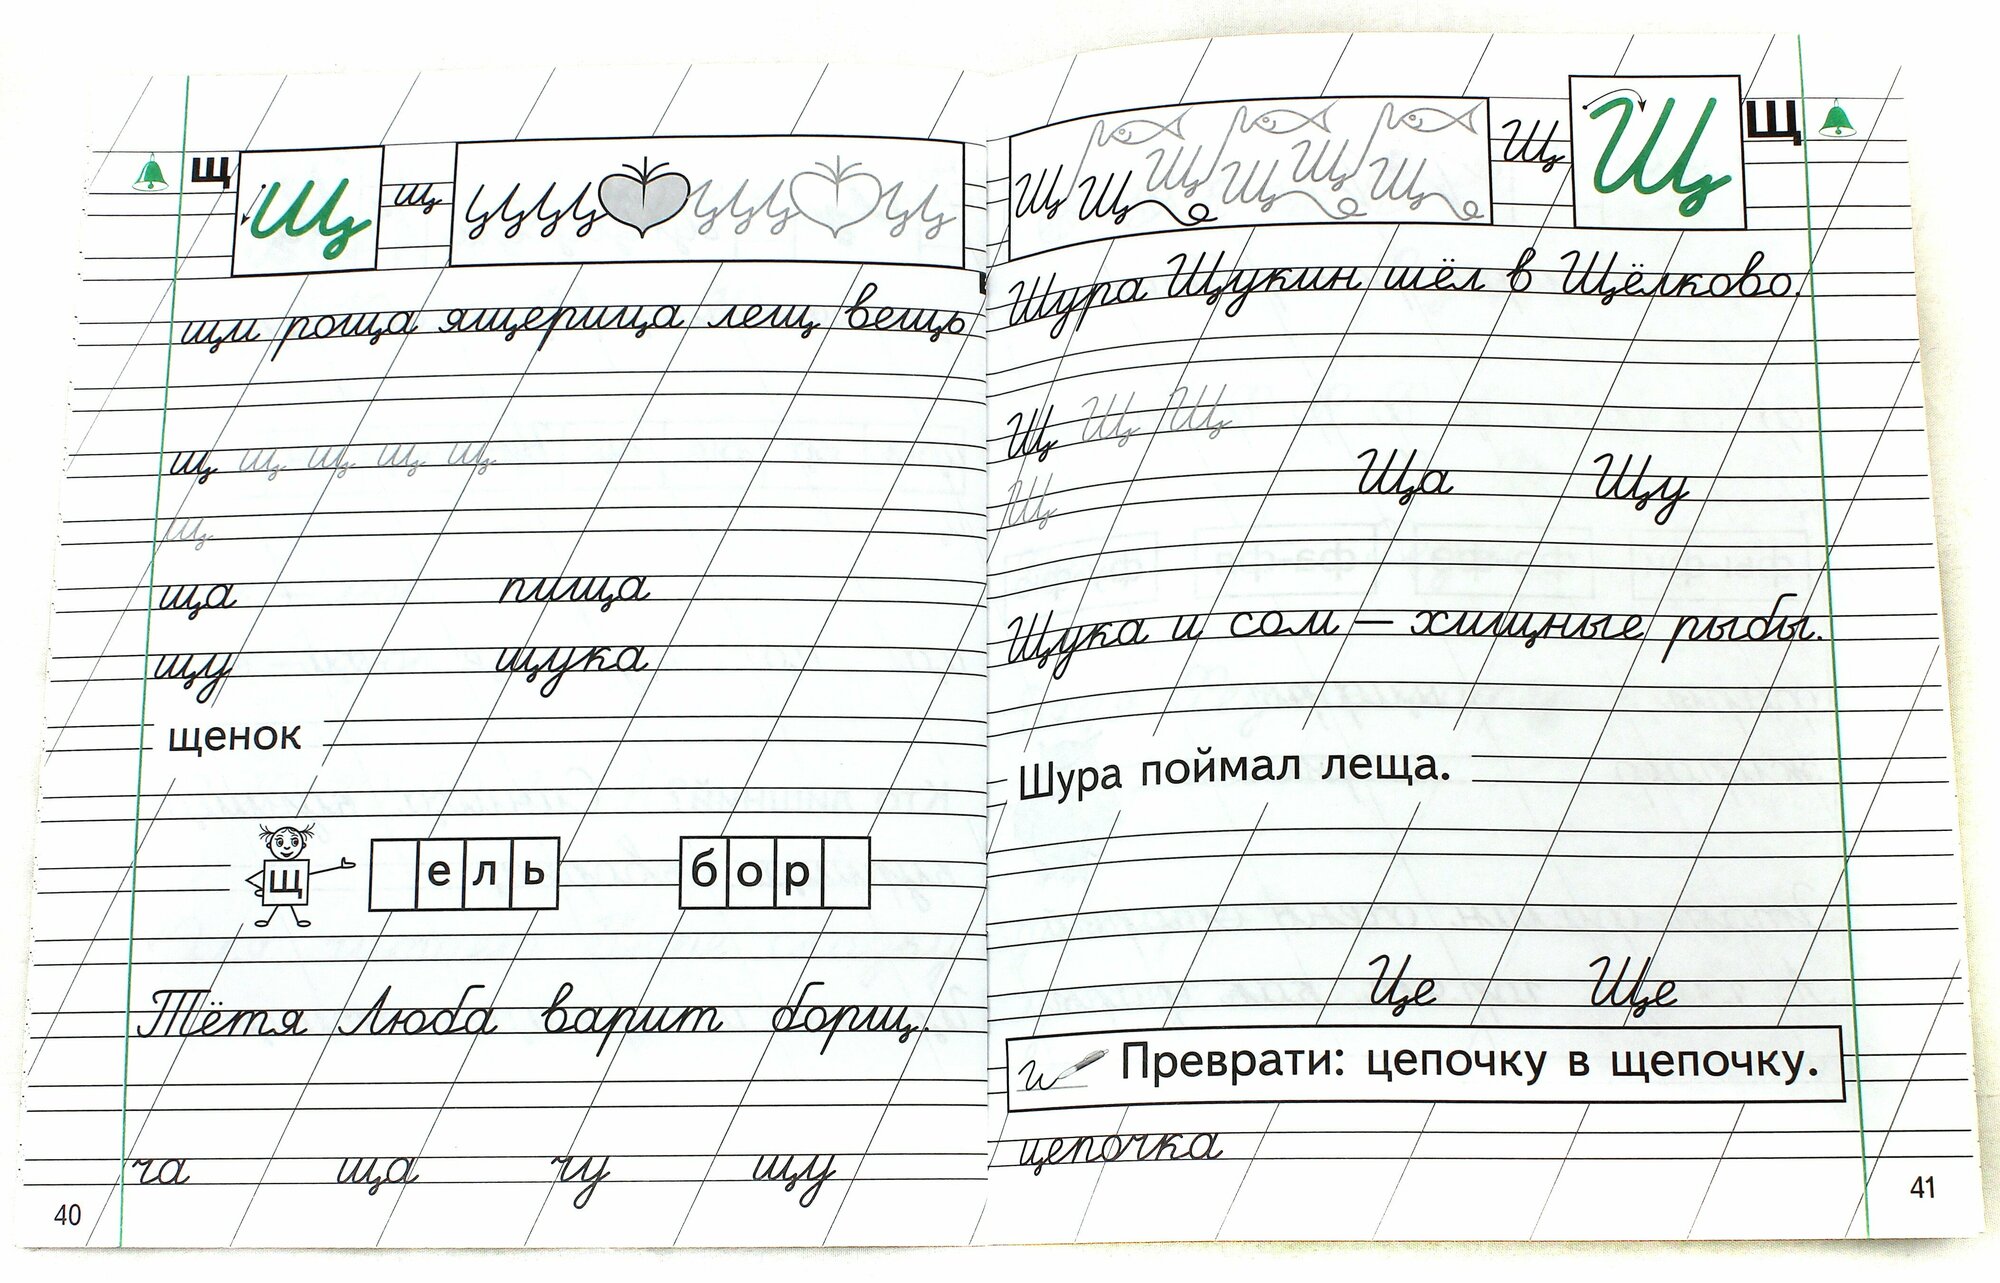 щ щ щ
щи роща ящерица лещ вещь
щ щ щ щ щ
щ
ща пища
щу щука
щенок
щ ель бор
Тётя Люба варит борщ.
ча ща чу щу
40
Щ Щ Щ Щ Щ Щ Щ Щ Щ
Шура Щукин шёл в Щёлково.
Щ Щ Щ
Щ
Ща Щу
Щука и сом — хищные рыбы.
Шура поймал леща.
Це Ще
и Преврати: цепочку в щепочку.
цепочка
41